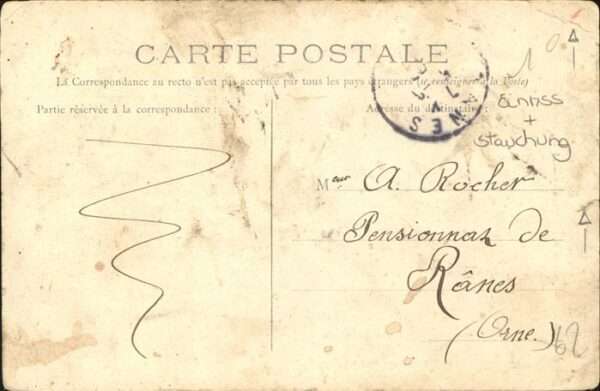 CARTE POSTALE
La Correspondance au recto n'est pas acceptée par tous les pays étrangers (se renseigner à la Poste)
Partie réservée à la correspondance:
Adresse du destinataire:
RANES
Einriss
+
Stauchung
10
Meur A. Rocher
Pensionnat de
Rânes
(Orne.)
62